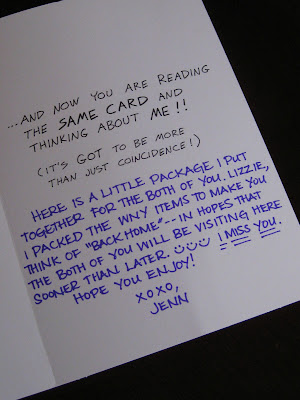 ...AND NOW YOU ARE READING
THE SAME CARD AND
THINKING ABOUT ME!!
(IT'S GOT TO BE MORE
THAN JUST COINCIDENCE!)
HERE IS A LITTLE PACKAGE I PUT
TOGETHER FOR THE BOTH OF YOU. LIZZIE,
I PACKED THE WNY ITEMS TO MAKE YOU
THINK OF "BACK HOME"-- IN HOPES THAT
THE BOTH OF YOU WILL BE VISITING HERE
SOONER THAN LATER. I MISS YOU.
HOPE YOU ENJOY!
XOXO,
JENN